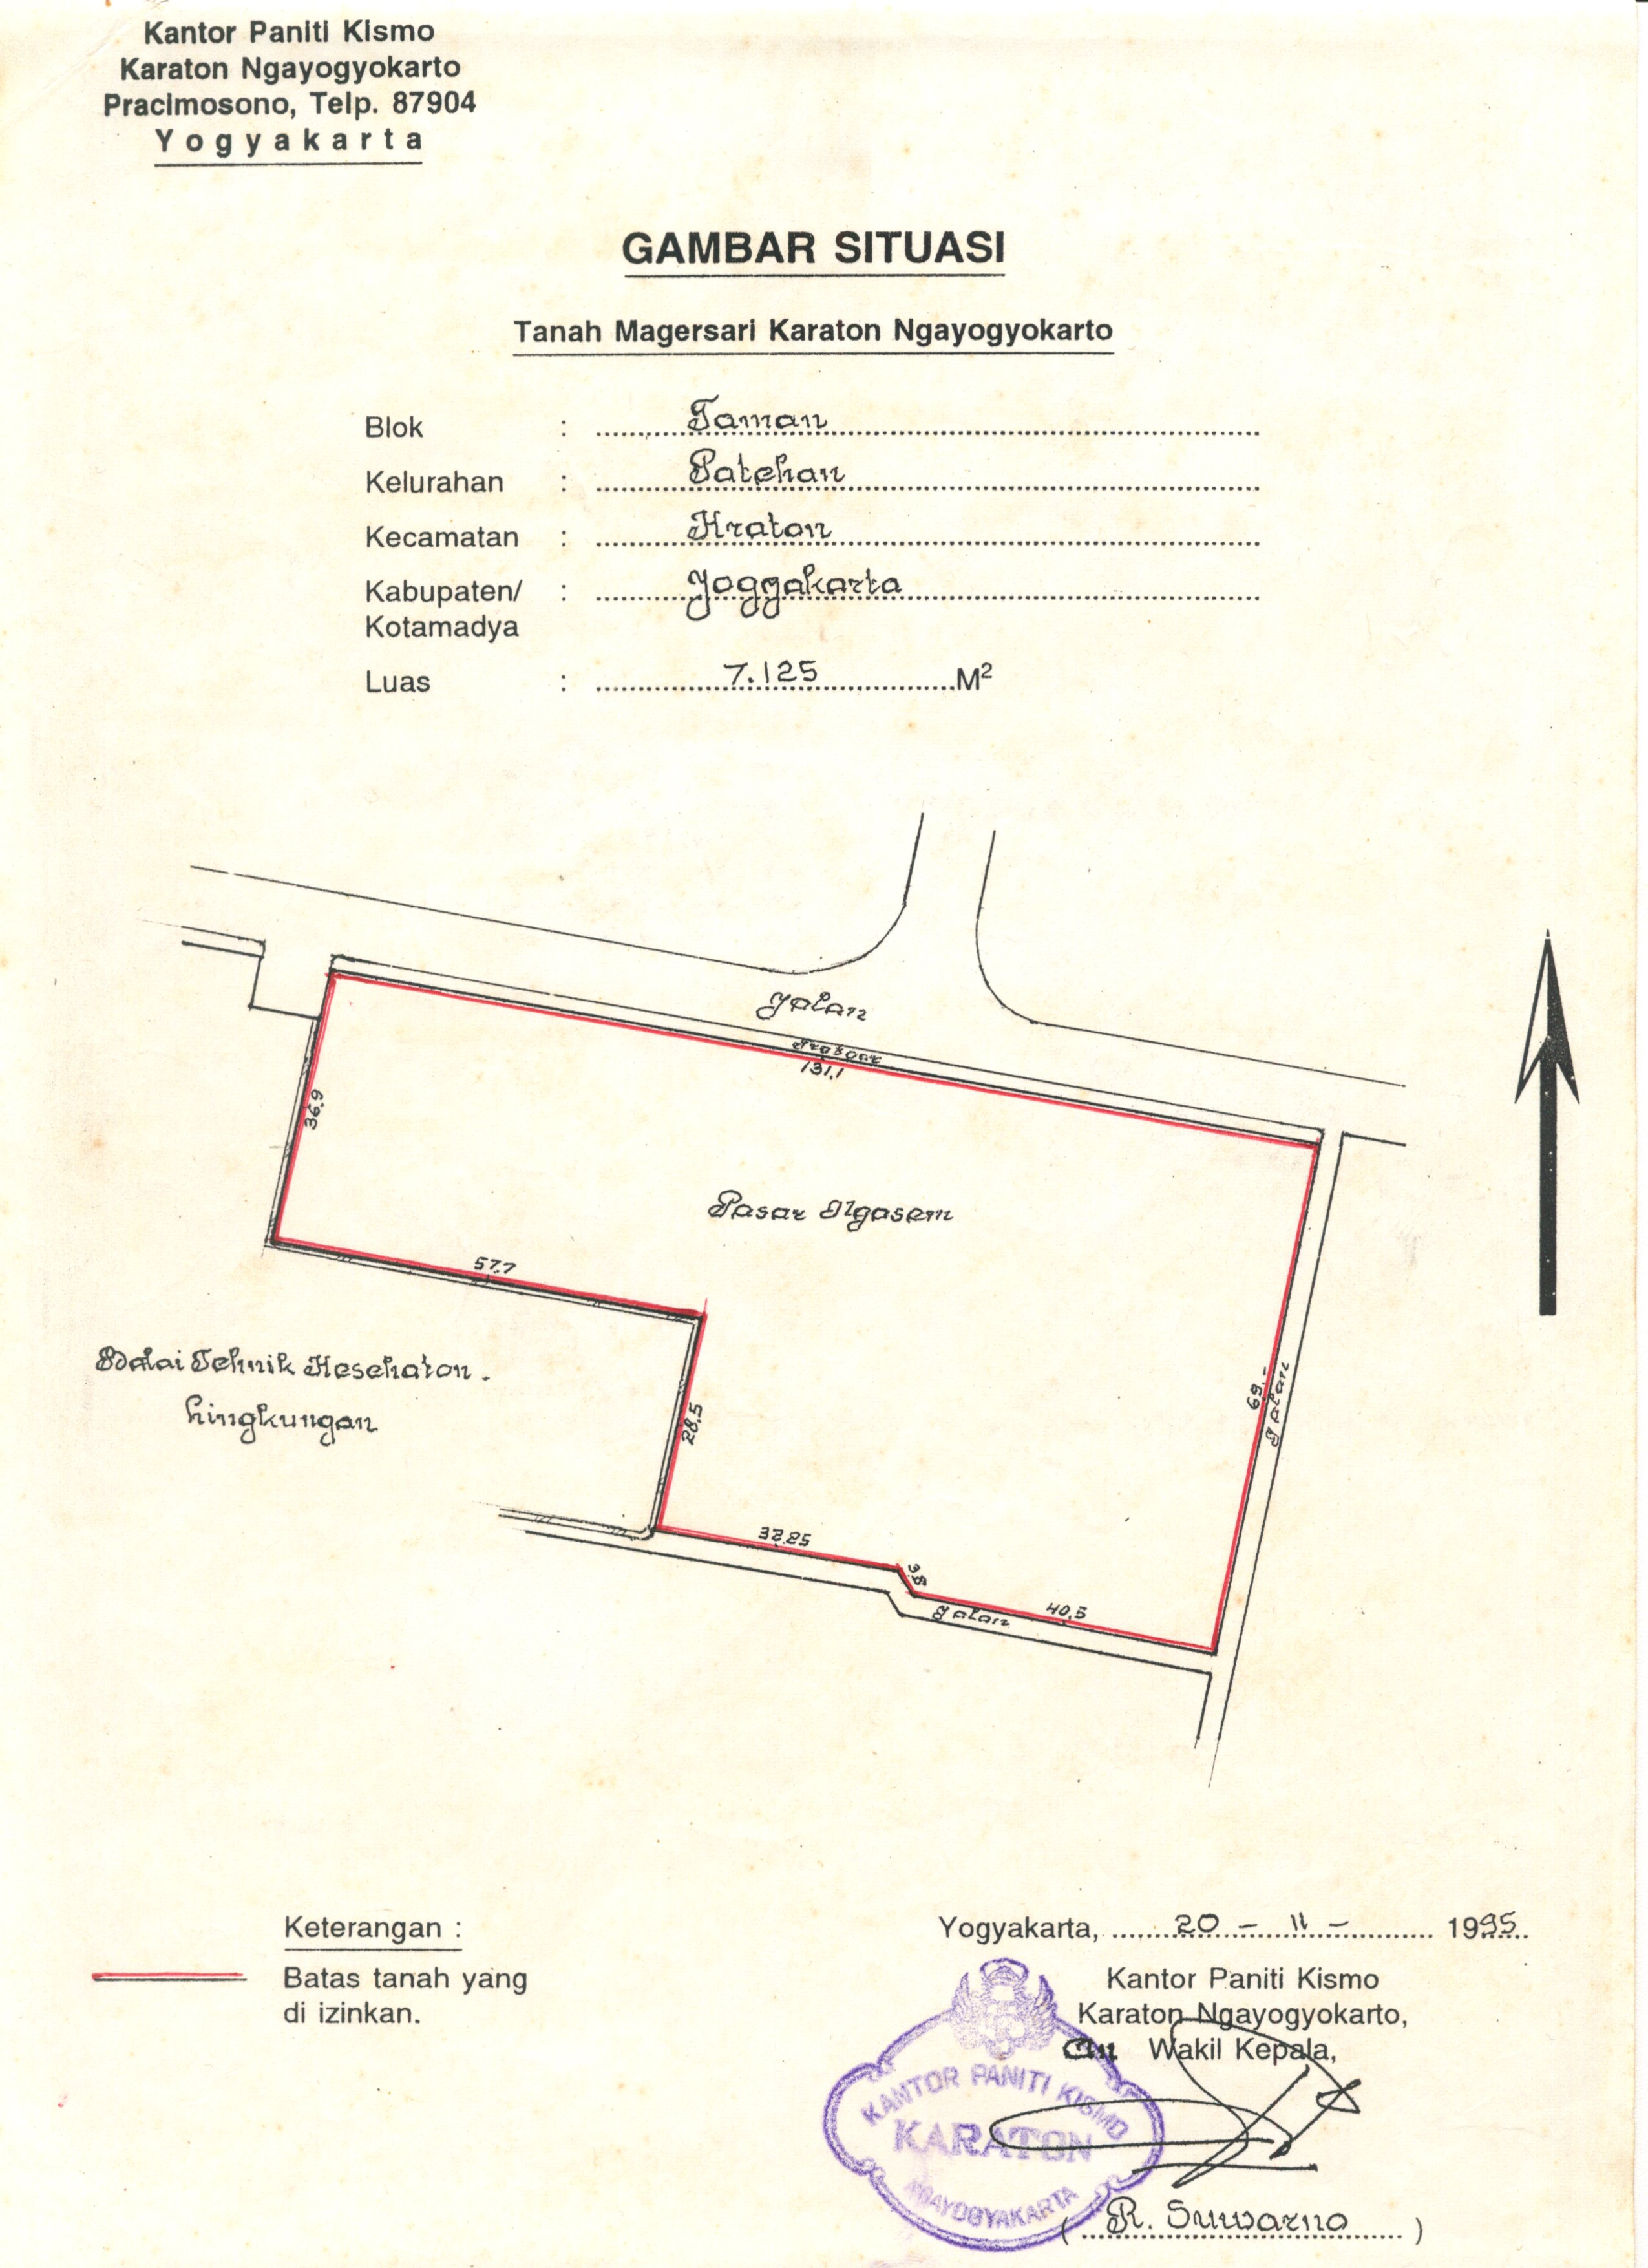 Kantor Paniti Kismo
Karaton Ngayogyokarto
Pracimosono, Telp. 87904
Yogyakarta
GAMBAR SITUASI
Tanah Magersari Karaton Ngayogyokarto
Blok : Taman
Kelurahan : Patehan
Kecamatan : Kraton
Kabupaten/ : Yogyakarta
Kotamadya
Luas : 7.125 M²
Jalan
Trotoar
131,1
36,9
Pasar Ngasem
57,7
Balai Tehnik Kesehatan.
Lingkungan
28,5
69.-
Jalan
32,25
3,8
40,5
Jalan
Keterangan :
Batas tanah yang
di izinkan.
Yogyakarta, 20 - 11 - 1995.
Kantor Paniti Kismo
Karaton Ngayogyokarto,
An Wakil Kepala,
KANTOR PANITI KISMO
KARATON
NGAYOGYAKARTA
( R. Suwarno )